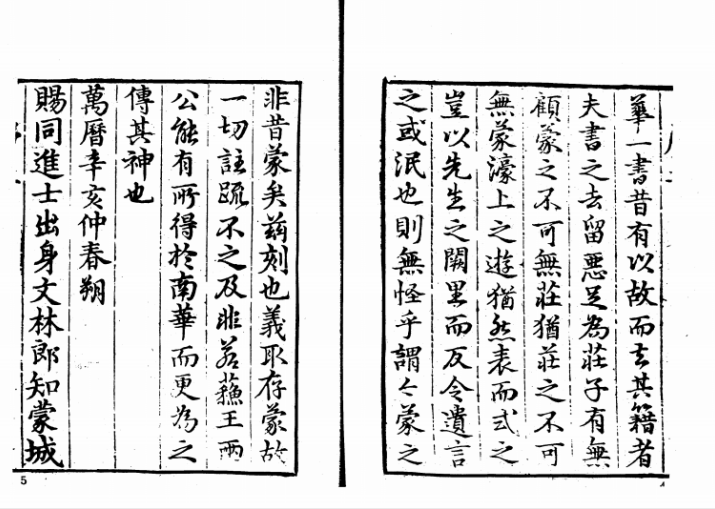 華一書昔有以故而去其籍者
夫書之去留惡足為莊子有無
顧蒙之不可無莊猶莊之不可
無蒙濠上之遊猶然表而式之
豈以先生之闕里而反令遺言
之或泯也則無怪乎謂今蒙之
非昔蒙矣茲刻也義取存蒙故
一切註䟽不之及非若蘓王兩
公能有所得於南華而更為之
傳其神也
萬曆辛亥仲春朔
賜同進士出身文林郎知蒙城
5